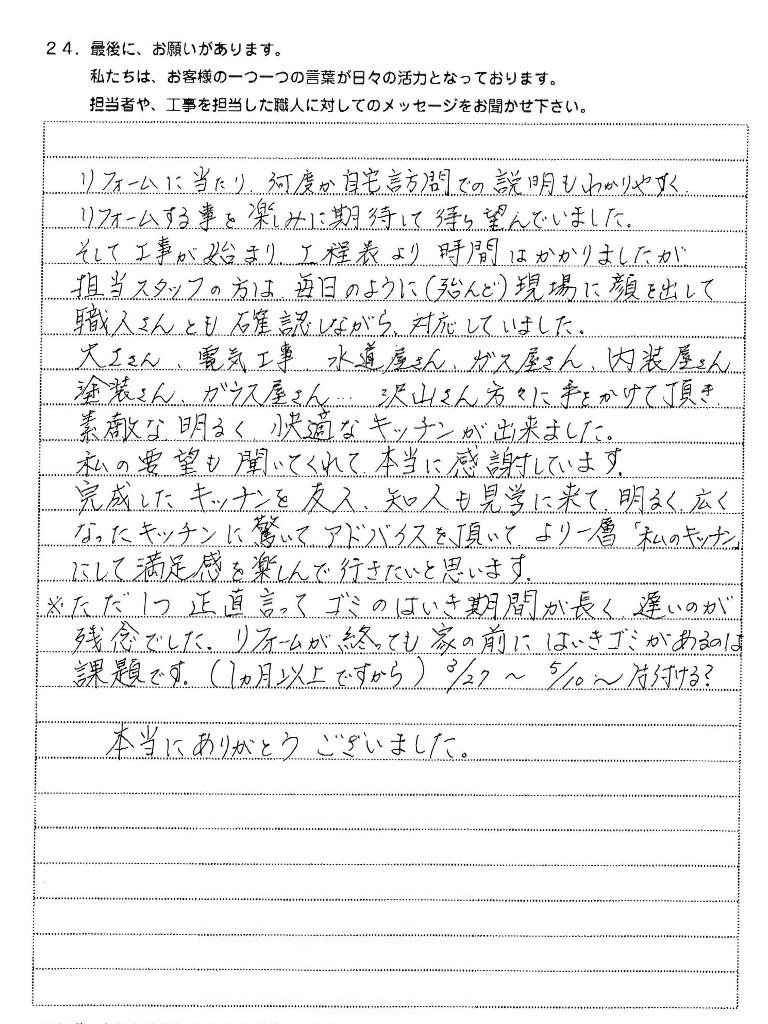 ２４．最後に、お願いがあります。
私たちは、お客様の一つ一つの言葉が日々の活力となっております。
担当者や、工事を担当した職人に対してのメッセージをお聞かせ下さい。
リフォームに当たり、何度か自宅訪問での説明もわかりやすく、
リフォームする事を楽しみに期待して待ち望んでいました。
そして工事が始まり、工程表より時間はかかりましたが
担当スタッフの方は、毎日のように(殆んど)現場に顔を出して
職人さんとも確認しながら、対応していました。
大工さん、電気工事、水道屋さん、ガス屋さん、内装屋さん
塗装さん、ガラス屋さん… 沢山さん方々に手をかけて頂き、
素敵な明るく、快適なキッチンが出来ました。
私の要望も聞いてくれて、本当に感謝しています。
完成したキッチンを友人、知人も見学に来て、明るく、広く
なったキッチンに驚いてアドバイスを頂いて、より一層「私のキッチン」
にして満足感を楽しんで行きたいと思います。
※ただ1つ 正直言って ゴミのはいき期間が長く、遅いのが
残念でした。リフォームが終っても家の前にはいきゴミがあるのは
課題です。(1ヵ月以上ですから) 3/27 〜 5/10 〜 片付ける?
本当にありがとうございました。